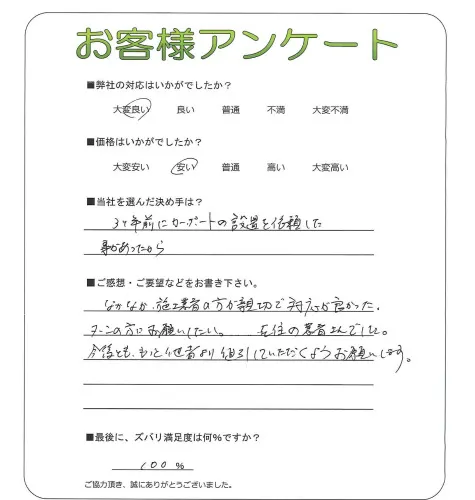 お客様アンケート
■弊社の対応はいかがでしたか?
大変良い 良い 普通 不満 大変不満
■価格はいかがでしたか?
大変安い 安い 普通 高い 大変高い
■当社を選んだ決め手は?
3年前にカーポートの設置を依頼した
事があったから
■ご感想・ご要望などをお書き下さい。
なかなか、施工業者の方が親切で対応が良かった。
の方にお願いしたい。 在住の業者さんでした。
今後とも、もっと他者より値引していただくようお願いします。
■最後に、ズバリ満足度は何%ですか?
100%
ご協力頂き、誠にありがとうございました。